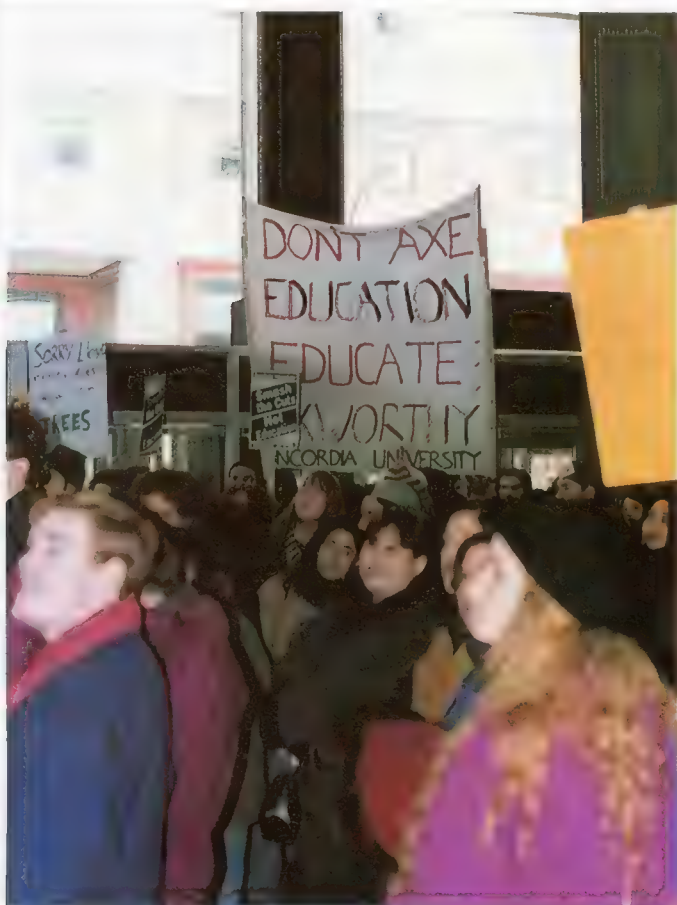 DONT AXE
EDUCATION
EDUCATE :
KWORTHY
NCORDIA UNIVERSITY
SORRY
TREES
Smash
the Cuts
Not